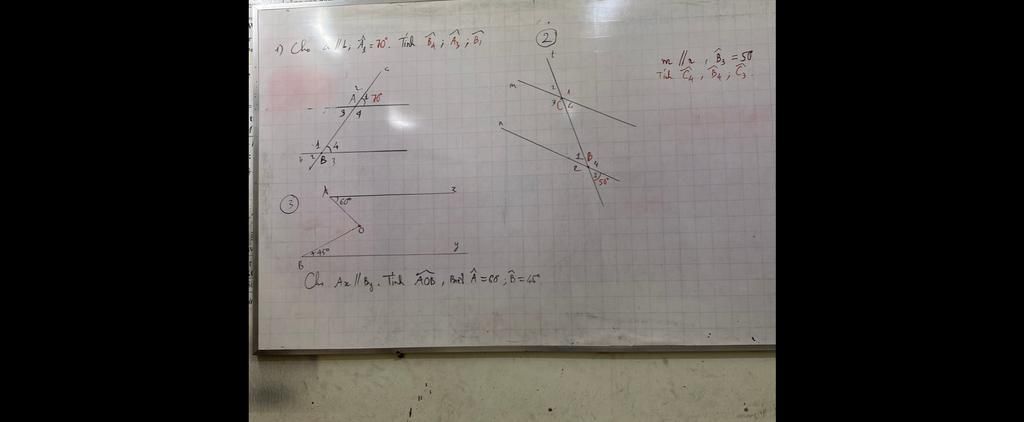 1) Cho a // b, Â₁ = 70°. Tính B̂₄ ; Â₃ ; B̂₁
c
2
A 1 70°
3 4
1 4
2 B 3
②
t
m
2 1
3 C 4
n
1 B 4
2 3
50°
m // n, B̂₃ = 50
Tính Ĉ₄, B̂₄, Ĉ₃.
③
A x
60°
O
y
45°
B
Cho Ax // By. Tính AOB, Biết Â = 60, B̂ = 45°